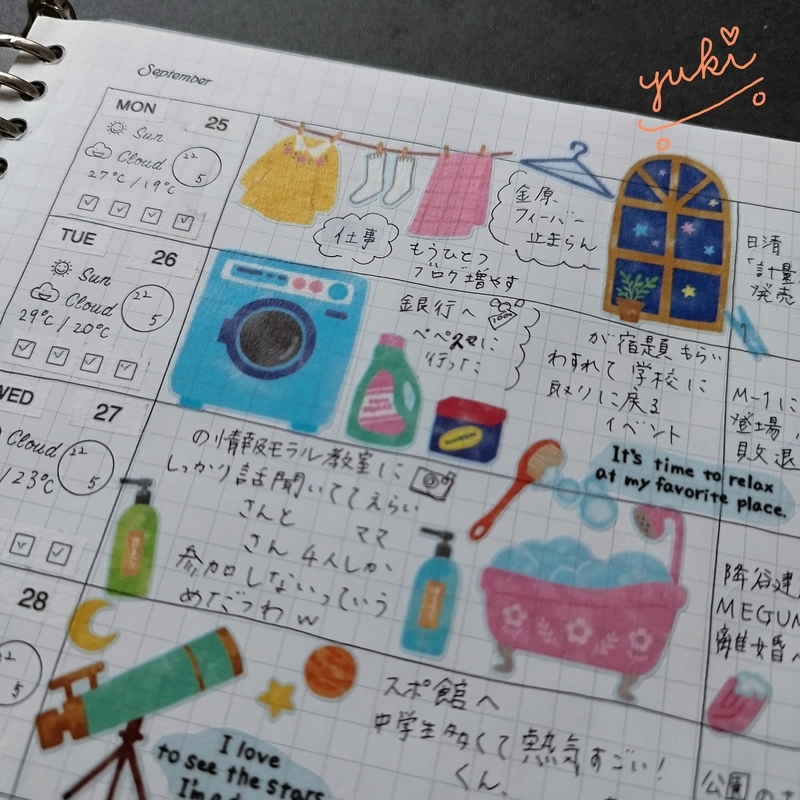 yuki
September
MON 25
Sun
Cloud
22
5
27°C/19°C
仕事
もうひとつ
ブログ増やす
金原、
フィーバー
止まらん
日清
計量
発売
TUE 26
Sun
Cloud
22
5
29°C/20°C
銀行へ
ペペスに
行った
が宿題もらい
わすれて学校に
取りに戻る
イベント
M-1に
登場
敗退
WED 27
Cloud
22
5
/23°C
の情報モラル教室に
しっかり話聞いててえらい
さんと ママ
さん 4人しか
参加しないっていう
めだつわw
It's time to relax
at my favorite place.
降谷建
MEGUM
離婚へ
28
22
5
I love
to see the stars
スポ館へ
中学生多くて熱気すごい!
くん、
公園のす